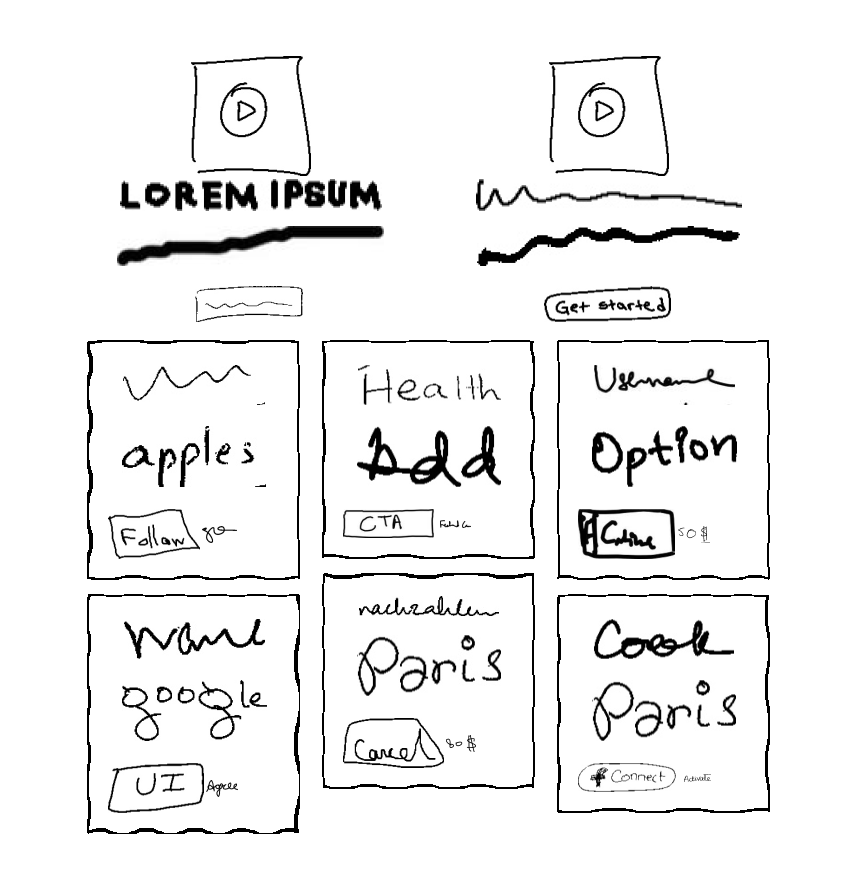 LOREM IPSUM
Get started
apples
Follow
Health
Add
CTA
Username
Option
50$
Name
google
UI Agree
nachzahlen
Paris
Cancel 80$
Cook
Paris
Connect Activate